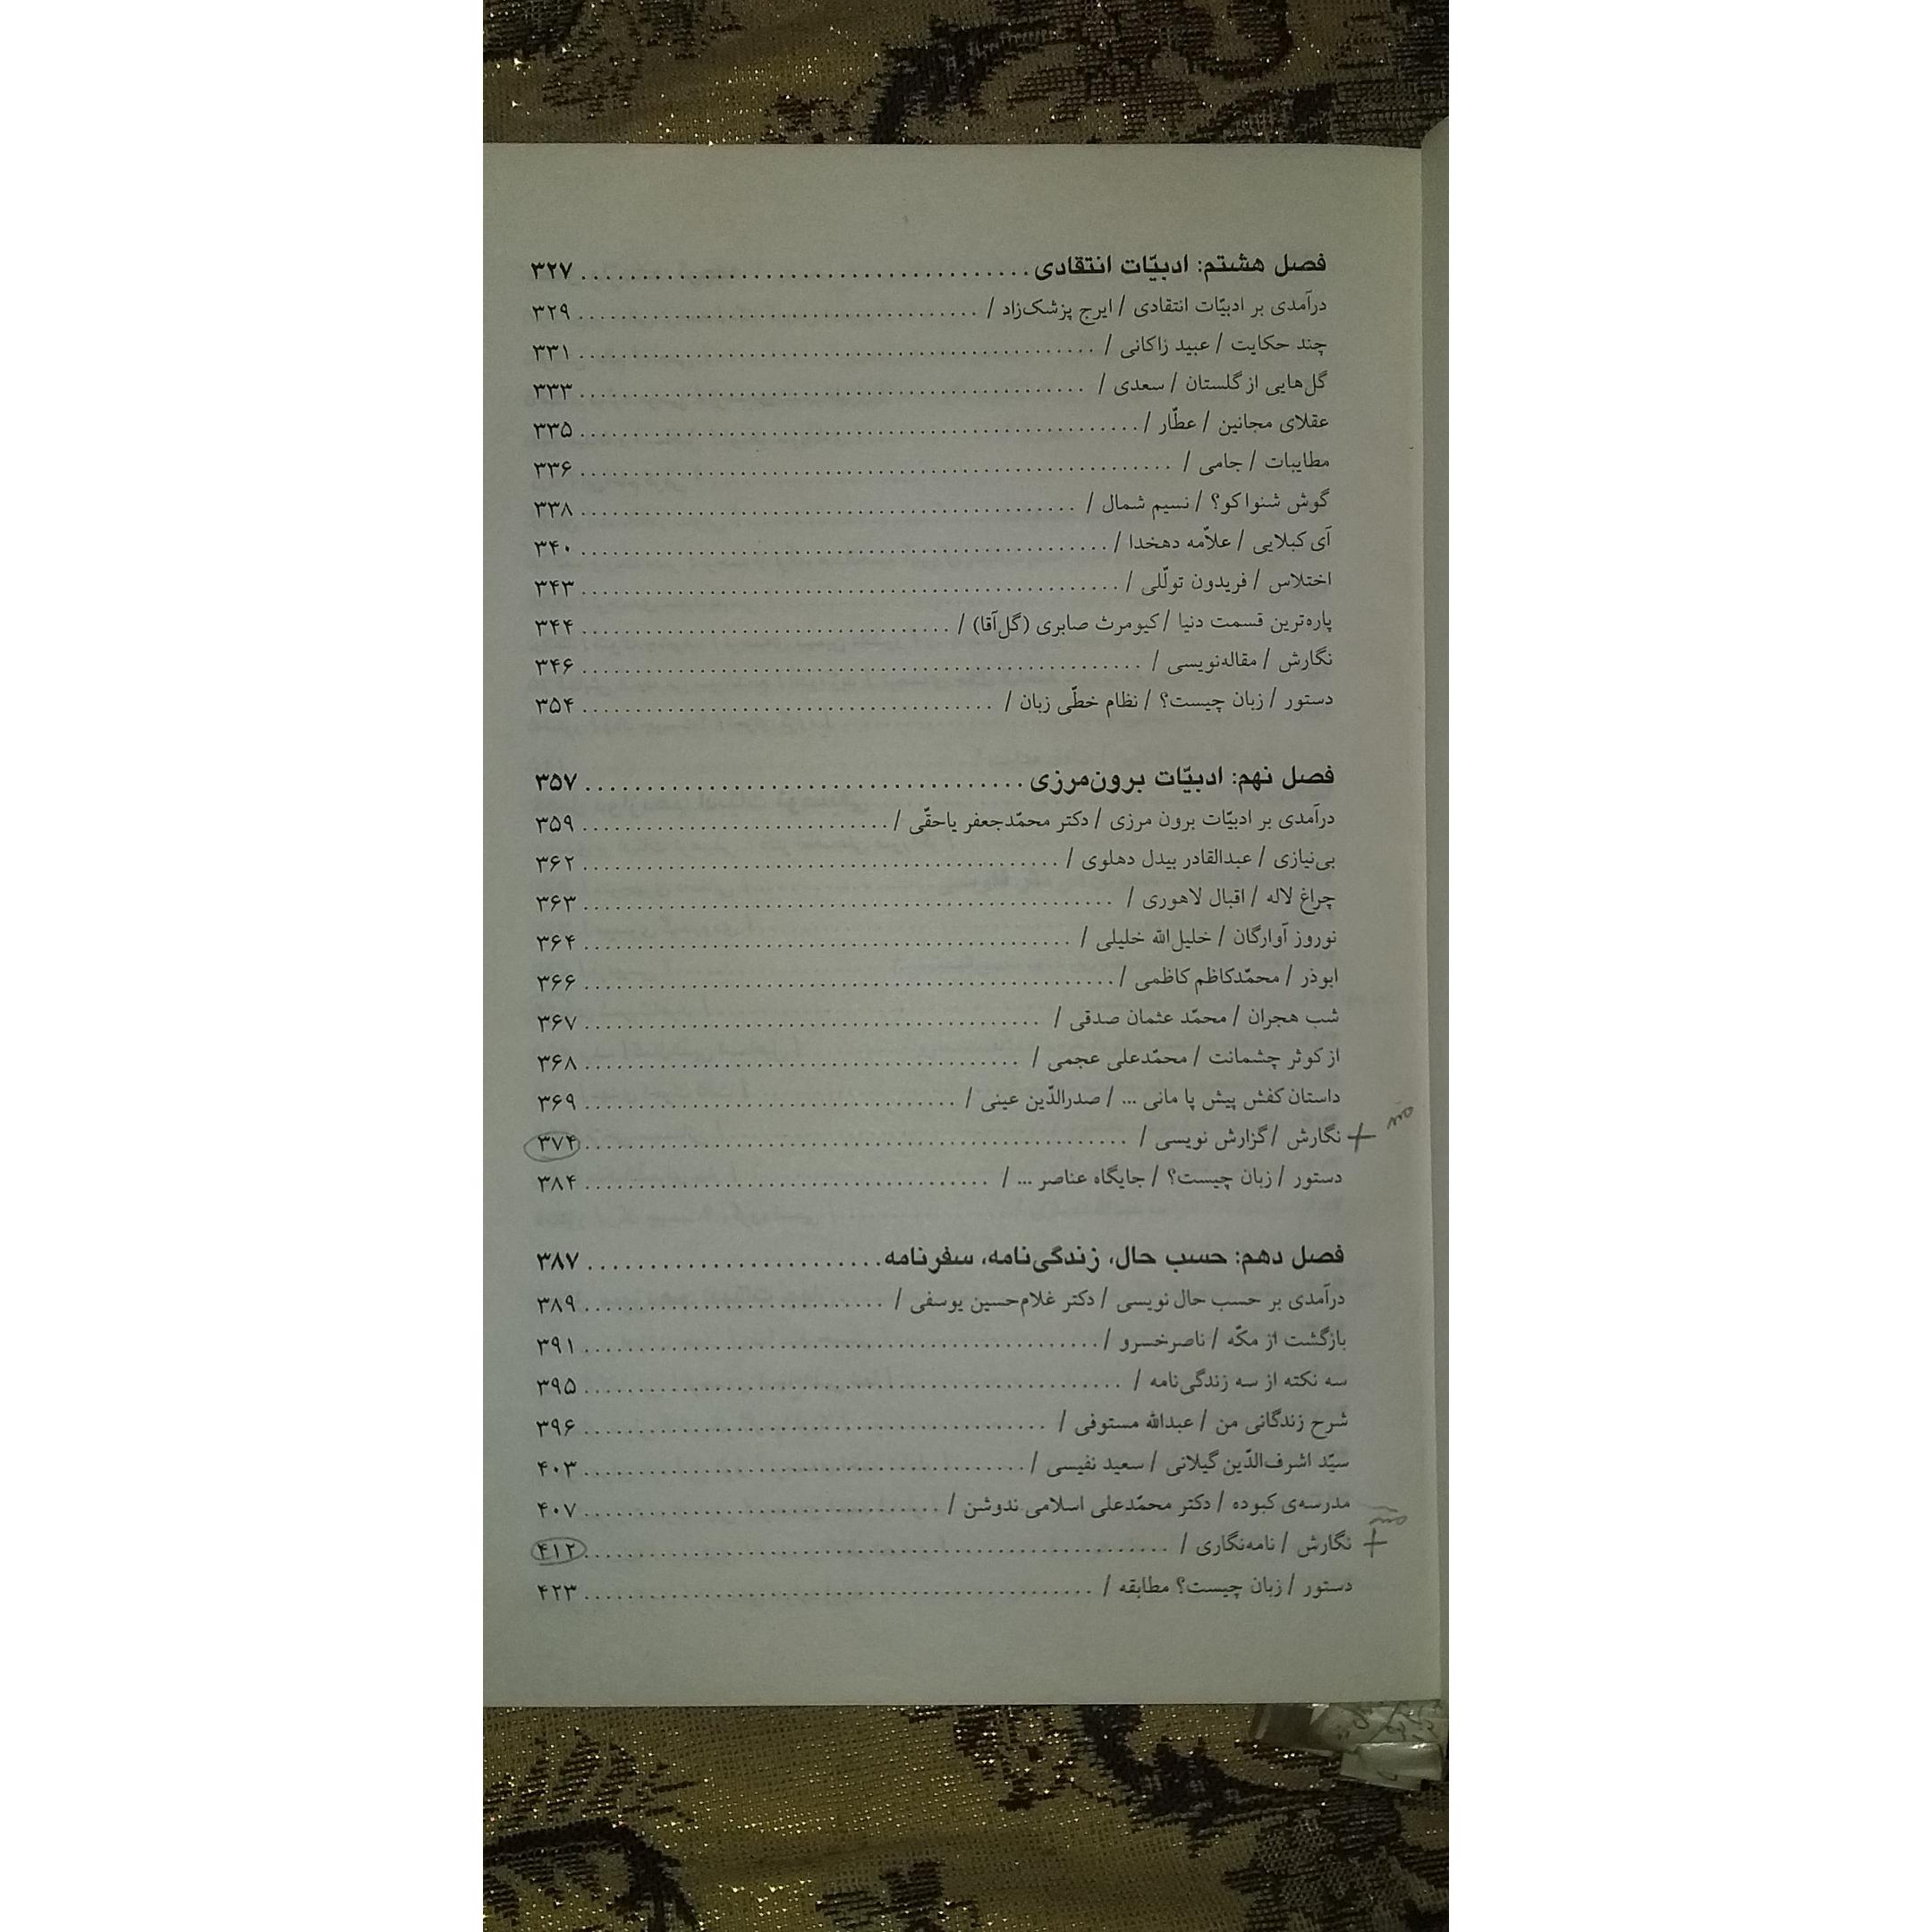 فصل هشتم: ادبیّات انتقادی ..... ۳۲۷
درآمدی بر ادبیّات انتقادی / ایرج پزشک‌زاد / ..... ۳۲۹
چند حکایت / عبید زاکانی / ..... ۳۳۱
گل‌هایی از گلستان / سعدی / ..... ۳۳۳
عقلای مجانین / عطّار / ..... ۳۳۵
مطایبات / جامی / ..... ۳۳۶
گوش شنوا کو؟ / نسیم شمال / ..... ۳۳۸
آی کبلایی / علاّمه دهخدا / ..... ۳۴۰
اختلاس / فریدون تولّلی / ..... ۳۴۳
پاره‌ترین قسمت دنیا / کیومرث صابری (گل‌آقا) / ..... ۳۴۴
نگارش / مقاله‌نویسی / ..... ۳۴۶
دستور / زبان چیست؟ / نظام خطّی زبان / ..... ۳۵۴
فصل نهم: ادبیّات برون‌مرزی ..... ۳۵۷
درآمدی بر ادبیّات برون مرزی / دکتر محمّدجعفر یاحقّی / ..... ۳۵۹
بی‌نیازی / عبدالقادر بیدل دهلوی / ..... ۳۶۲
چراغ لاله / اقبال لاهوری / ..... ۳۶۳
نوروز آوارگان / خلیل‌الله خلیلی / ..... ۳۶۴
ابوذر / محمّدکاظم کاظمی / ..... ۳۶۶
شب هجران / محمّد عثمان صدقی / ..... ۳۶۷
از کوثر چشمانت / محمّدعلی عجمی / ..... ۳۶۸
داستان کفش پیش پا مانی ... / صدرالدّین عینی / ..... ۳۶۹
+ نگارش / گزارش نویسی / ..... ۳۷۴
دستور / زبان چیست؟ / جایگاه عناصر ... / ..... ۳۸۴
فصل دهم: حسب حال، زندگی‌نامه، سفرنامه ..... ۳۸۷
درآمدی بر حسب حال نویسی / دکتر غلام‌حسین یوسفی / ..... ۳۸۹
بازگشت از مکّه / ناصرخسرو / ..... ۳۹۱
سه نکته از سه زندگی‌نامه / ..... ۳۹۵
شرح زندگانی من / عبدالله مستوفی / ..... ۳۹۶
سیّد اشرف‌الدّین گیلانی / سعید نفیسی / ..... ۴۰۳
مدرسه‌ی کبوده / دکتر محمّدعلی اسلامی ندوشن / ..... ۴۰۷
+ نگارش / نامه‌نگاری / ..... ۴۱۲
دستور / زبان چیست؟ مطابقه / ..... ۴۲۳